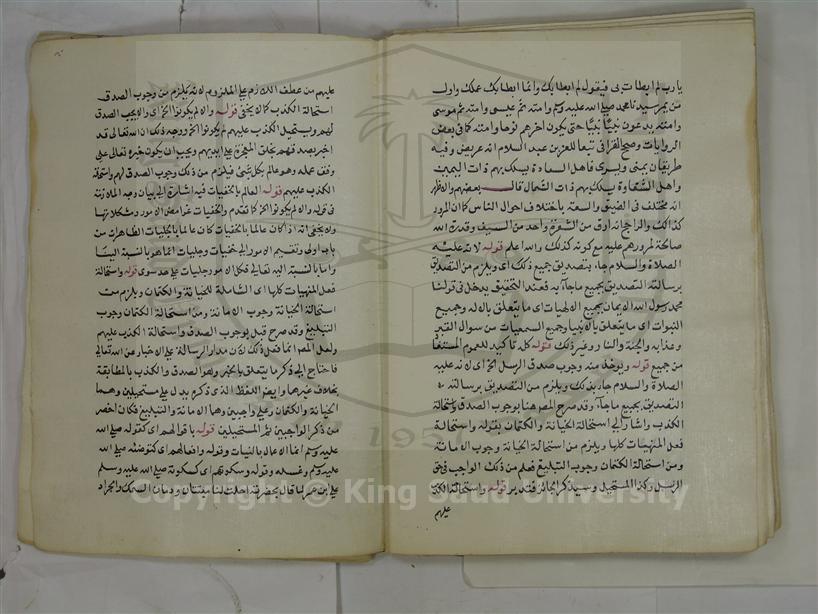 يارب لم ابطات بى فيقول لم ابطا بك وانما ابطا بك عملك واول
من يمر سيدنا محمد صلى الله عليه وسلم وامته ثم عيسى وامته ثم موسى
وامته يدعون نبيًّا نبيًّا حتى يكون اخرهم نوحا وامته كما فى بعض
الروايات وصحح القرافى تبعا للعز بن عبد السلام انه عريض وفيه
طريقان يمنى ويسرى فاهل السعادة يسلك بهم ذات اليمين
واهل الشقاوة يسلك بهم ذات الشمال قال بعضهم والاظهر
انه مختلف فى الضيق والسعة باختلاف احوال الناس كما ان المرور
كذلك والراجح انه ادق من الشعرة واحد من السيف وقدرة الله
صالحة لمرورهم عليه مع كونه كذلك والله اعلم قوله لانه عليه
الصلاة والسلام جاء بتصديق جميع ذلك اى ويلزم من التصديق
برسالته التصديق بجميع ما جاء به فعند التحقيق يدخل فى قولنا
محمد رسول الله الايمان بجميع الالهيات اى ما يتعلق بالاله وجميع
النبوات اى ما يتعلق بالانبيا وجميع السمعيات من سوال القبر
وعذابه والجنة والنار وغير ذلك قوله كله تاكيد للعموم المستفاد
من جميع قوله ويوخذ منه وجوب صدق الرسل الخ اى لانه عليه
الصلاة والسلام جاء بذلك ويلزم من التصديق برسالته
التصديق بجميع ما جاء به وقد صرح المص هنا بوجوب الصدق واستحالة
الكذب واشار الى استحالة الخيانة والكتمان بقوله واستحالة
فعل المنهيات كلها ويلزم من استحالة الخيانة وجوب الامانة
ومن استحالة الكتمان وجوب التبليغ فعلم من ذلك الواجب فى حق
الرسل وكذا المستحيل وسيذكر الجائز فتدبر قوله واستحالة الكذب
عليهم
عليهم من عطف اللازم على الملزوم لانه يلزم من وجوب الصدق
استحالة الكذب كما لا يخفى قوله والا لم يكونوا الخ اى والا يجب الصدق
لهم ويستحيل الكذب عليهم لم يكونوا الخ ووجه ذلك ان الله تعالى قد
اخبر بصدقهم بخلق المعجزة على ايديهم ويجب ان يكون خبره تعالى على
وفق علمه وهو عالم بكل شى فيلزم من ذلك وجوب الصدق لهم واستحالة
الكذب عليهم قوله العالم بالخفيات فيه اشارة الى بيان وجه الملازمة
فى قوله والا لم يكونوا الخ كما تقدم والخفيات غوامض الامور ومشكلاتها
ولا يخفى انه اذا كان عالما بالخفيات كان عالما بالجليات الظاهرات من
باب اولى وتقسيم الامور الى خفيات وجليات انما هو بالنسبة الينا
واما بالنسبة اليه تعالى فكل الامور جليات على حد سوى قوله واستحالة
فعل المنهيات كلها اى الشاملة للخيانة والكتمان ويلزم من
استحالة الخيانة وجوب الامانة ومن استحالة الكتمان وجوب
التبليغ وقد صرح قبل بوجوب الصدق واستحالة الكذب عليهم
ولعل المص انما فعل ذلك لان مدار الرسالة على الاخبار عن الله تعالى
فاحتاج الى ذكر ما يتعلق بالخبر وهو الصدق والكذب بالمطابقة
بخلاف غيرها وايضا اللفظ الذى ذكره يدل على مستحيلين وهما
الخيانة والكتمان وعلى واجبين وهما الامانة والتبليغ فكان اخصر
من ذكر الواجبين ثم المستحيلين قوله باقوالهم اى كقوله صلى الله
عليه وسلم انما الاعمال بالنيات وقوله وافعالهم اى كتوضئه صلى الله
عليه وسلم وغسله وقوله وسكوتهم اى كسكوته صلى الله عليه وسلم
على ابن عمر لما قال بحضرته احلت لنا ميتتان ودمان السمك والجراد
1957
Copyright © King Saud University